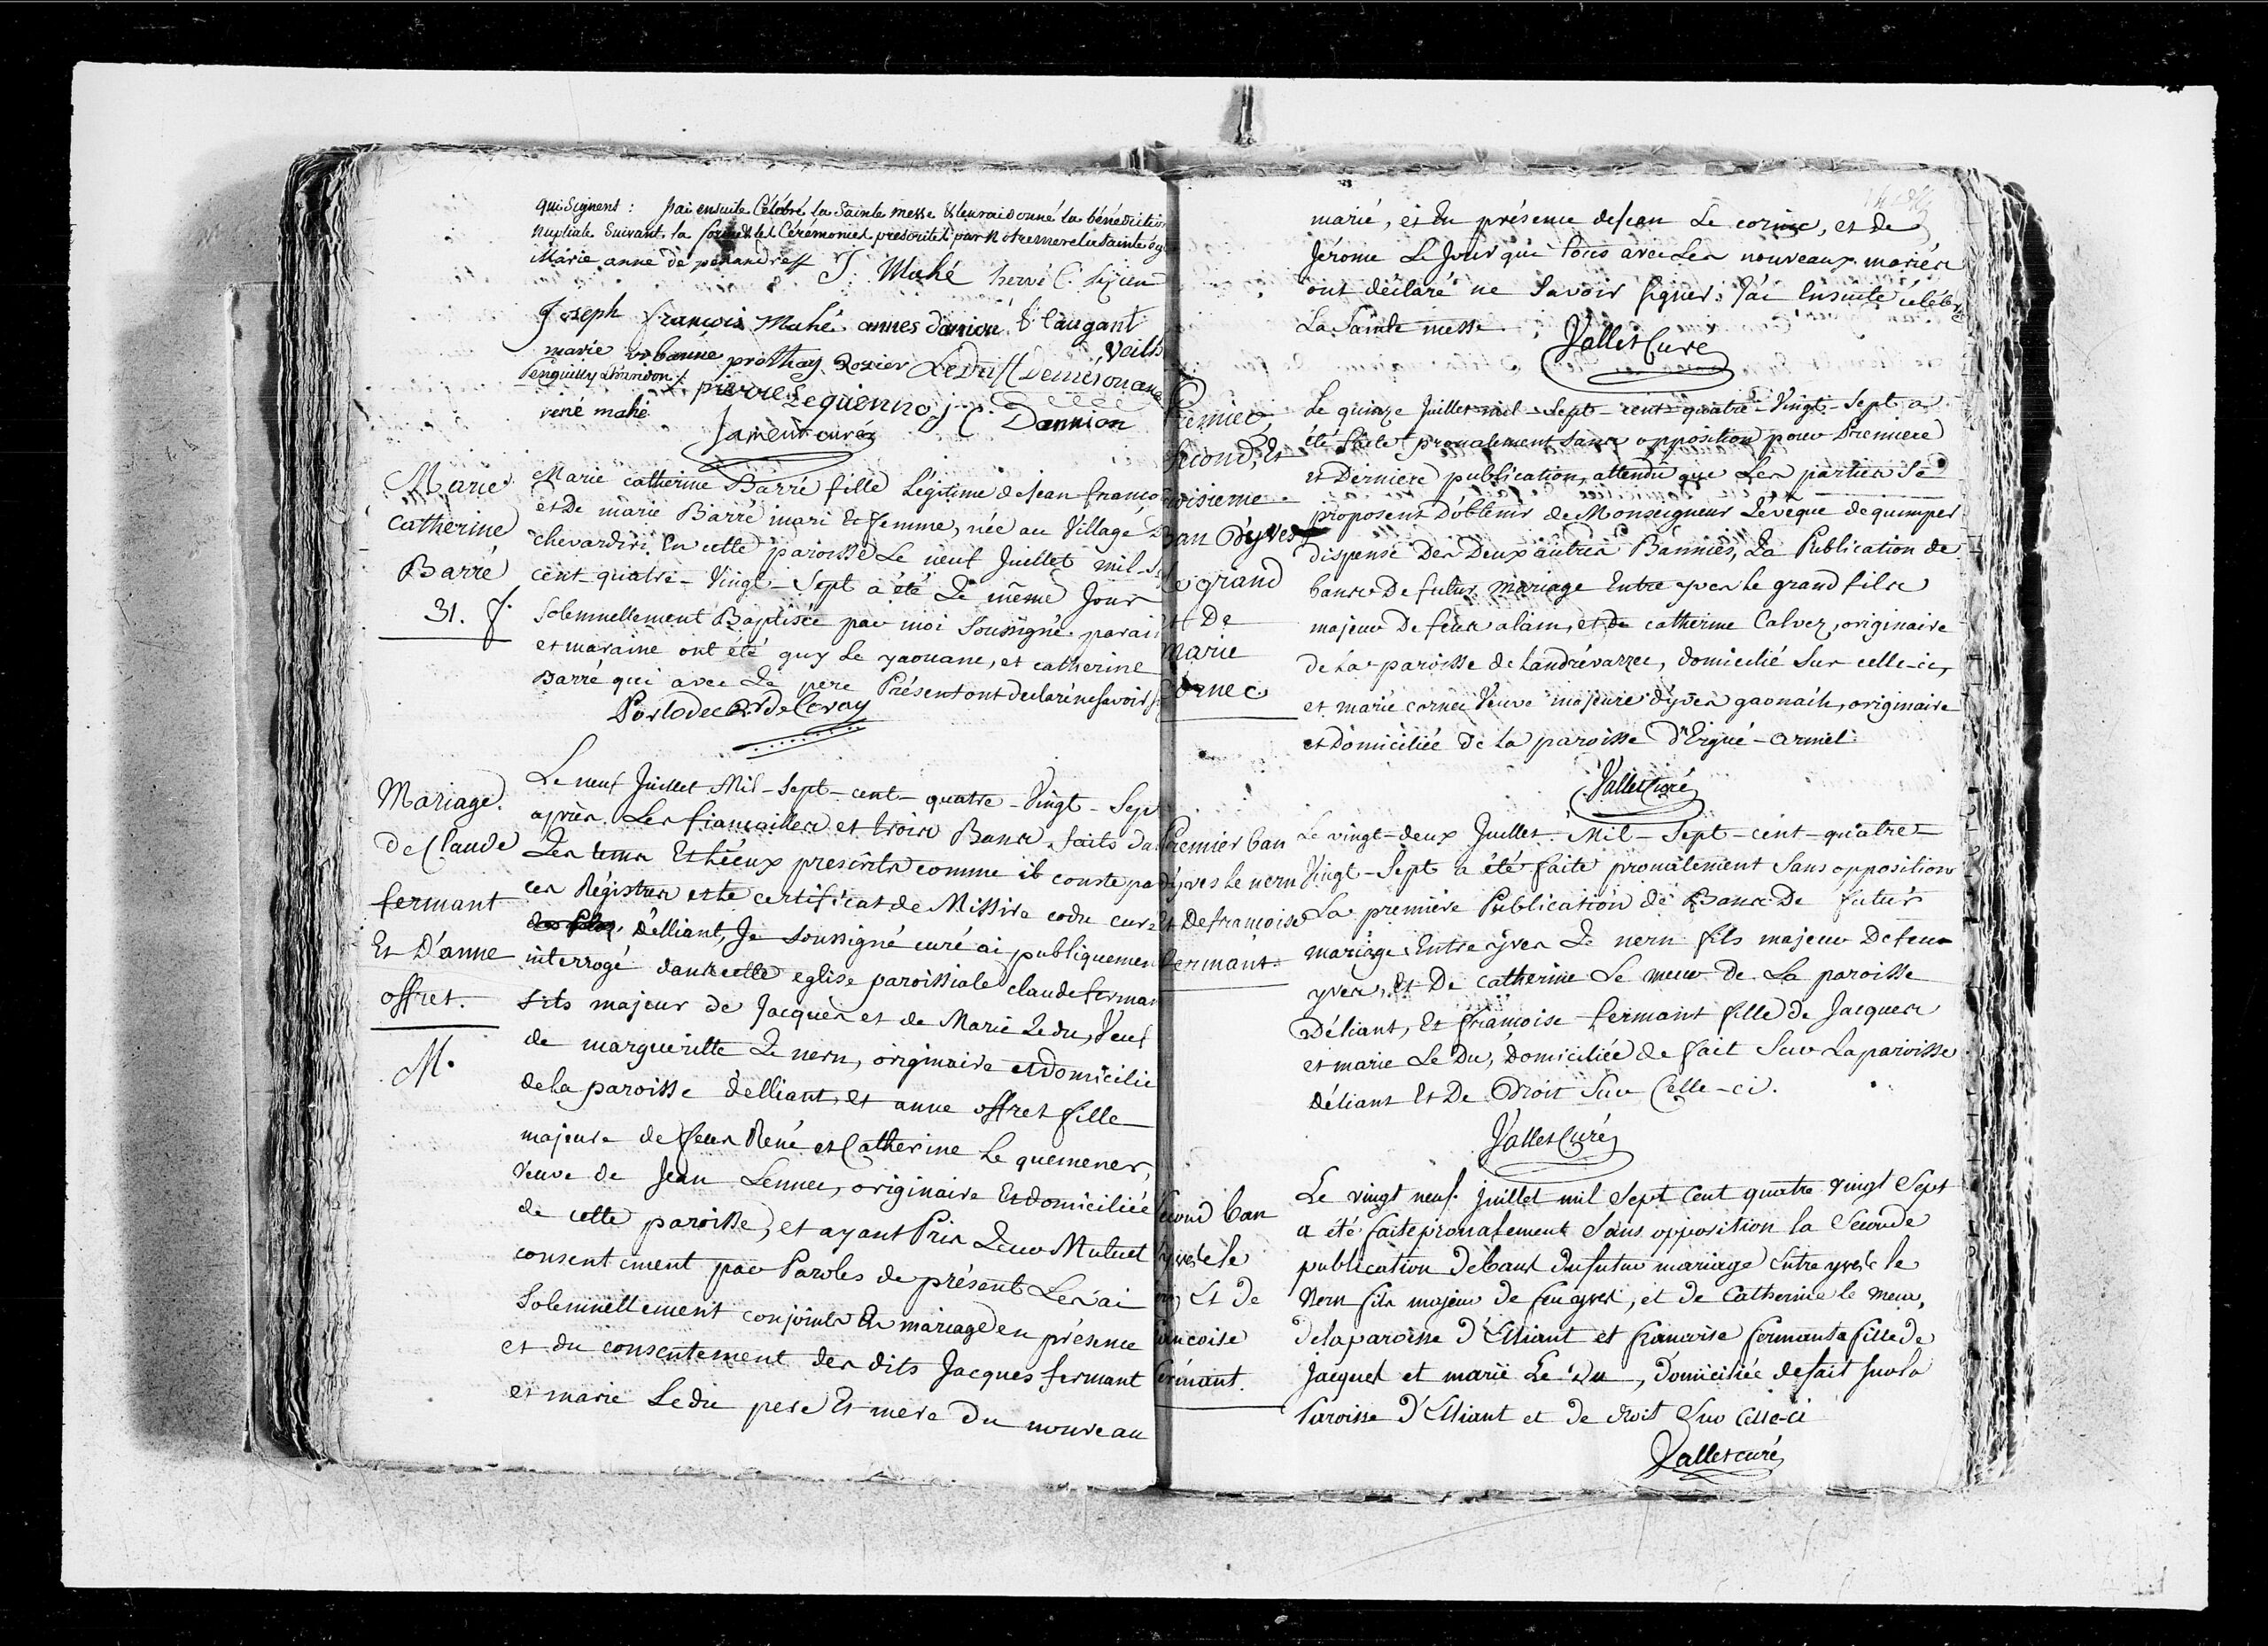 qui Signent : J'ai ensuite Célébré la Sainte messe & leur ai donné la bénédiction
nuptiale Suivant la forme & les Cérémonies prescrites par Notre mere la Sainte
Marie anne de penandreff J. Mahé hervé
Joseph françois Mahé annes danion
marie prothay Rosier
pierre Le quenno
rené mahé C. Dannion
Jameur curé
Marie
Catherine
Barré
31. f.
Marie Catherine Barré fille Légitime de Jean franço
et De marie Barré mari Et femme, née au Village
chevardiri En cette paroisse Le neuf Juillet mil S
cent quatre-Vingt-Sept a été Le même Jour
Solemnellement Baptisée par moi Soussigné. parain
et maraine ont été guy Le yaouanc, et catherine
Barré qui avec Le pere Présent ont declaré ne Savoir
Mariage
de Claude
fermant
Et D'anne
offret.
M.
Le neuf Juillet Mil-Sept-cent-quatre-Vingt-Sep
après Les fiançailles et trois Bans faits da
Les tems Et Lieux prescrits comme il conste pa
ces Régistres et le certificat de Missire codu curé
d'Elliant, Je soussigné curé ai publiquemen
interrogé dans cette eglise paroissiale claude ferman
fils majeur de Jacques et de Marie Ledu, Veuf
de margueritte Le nern, originaire et domicilié
de la paroisse d'elliant, et anne offret fille
majeure de feus René et Catherine Le quemener,
veuve de Jean Lennec, originaire Et domiciliée
de cette paroisse, et ayant Pris Leur Mutuel
consentement par Paroles de présent Les ai
Solemnellement conjoints En mariage en présence
et du consentement des dits Jacques fermant
et marie Le du pere Et mere Du nouveau
marié, et En présence de Jean Le cornic, et de
Jérome Le Jour qui tous avec Les nouveaux mariés
ont déclaré ne Savoir signer. J'ai Ensuite célébré
La Sainte messe.
Vallet Curé
Premier,
Second, Et
troisieme
Ban D'yves
Le grand
Et De
Marie
Cornec
Le quinze Juillet mil-Sept-cent-quatre-Vingt-Sept a
été faite pronalement Sans opposition pour Premiere
et Derniere publication, attendu que Les parties Se
proposent D'obtenir de Monseigneur L'évêque de quimper
dispense Des Deux autres Bannies, La Publication de
bans De futur mariage Entre yves Le grand fils
majeur De feu alain, et de catherine Calvez, originaire
de La paroisse de Landrévarzec, domicilié Sur celle-ci,
et marie cornec Veuve majeure d'yves gaonach, originaire
et Domiciliée de La paroisse D'Ergué-armel.
Vallet Curé
Premier ban
d'yves le nern
Et De francoise
fermant.
Le vingt-deux Juillet Mil-Sept-cent-quatre-
Vingt-Sept a été faite pronalement Sans opposition
La premiere Publication de Bans De futur
mariage Entre yves Le nern fils majeur De feu
yves, Et De catherine Le meur De La paroisse
D'éliant, Et francoise fermant fille de Jacques
et marie Le Du, domiciliée de fait Sur La paroisse
d'éliant Et De Droit Sur Celle-ci.
Vallet Curé
Second ban
d'yves le
nern Et De
francoise
fermant.
Le vingt neuf juillet mil Sept Cent quatre vingt Sept
a été faite pronalement Sans opposition la Seconde
publication De bans du futur mariage Entre yves le
Nern fils majeur de feu yves, et de Catherine le meur,
de la paroisse d'Elliant et francoise fermant fille de
Jacques et marie Le Du, Domiciliée de fait sur la
Paroisse d'Elliant et de droit Sur Celle-ci
Vallet curé